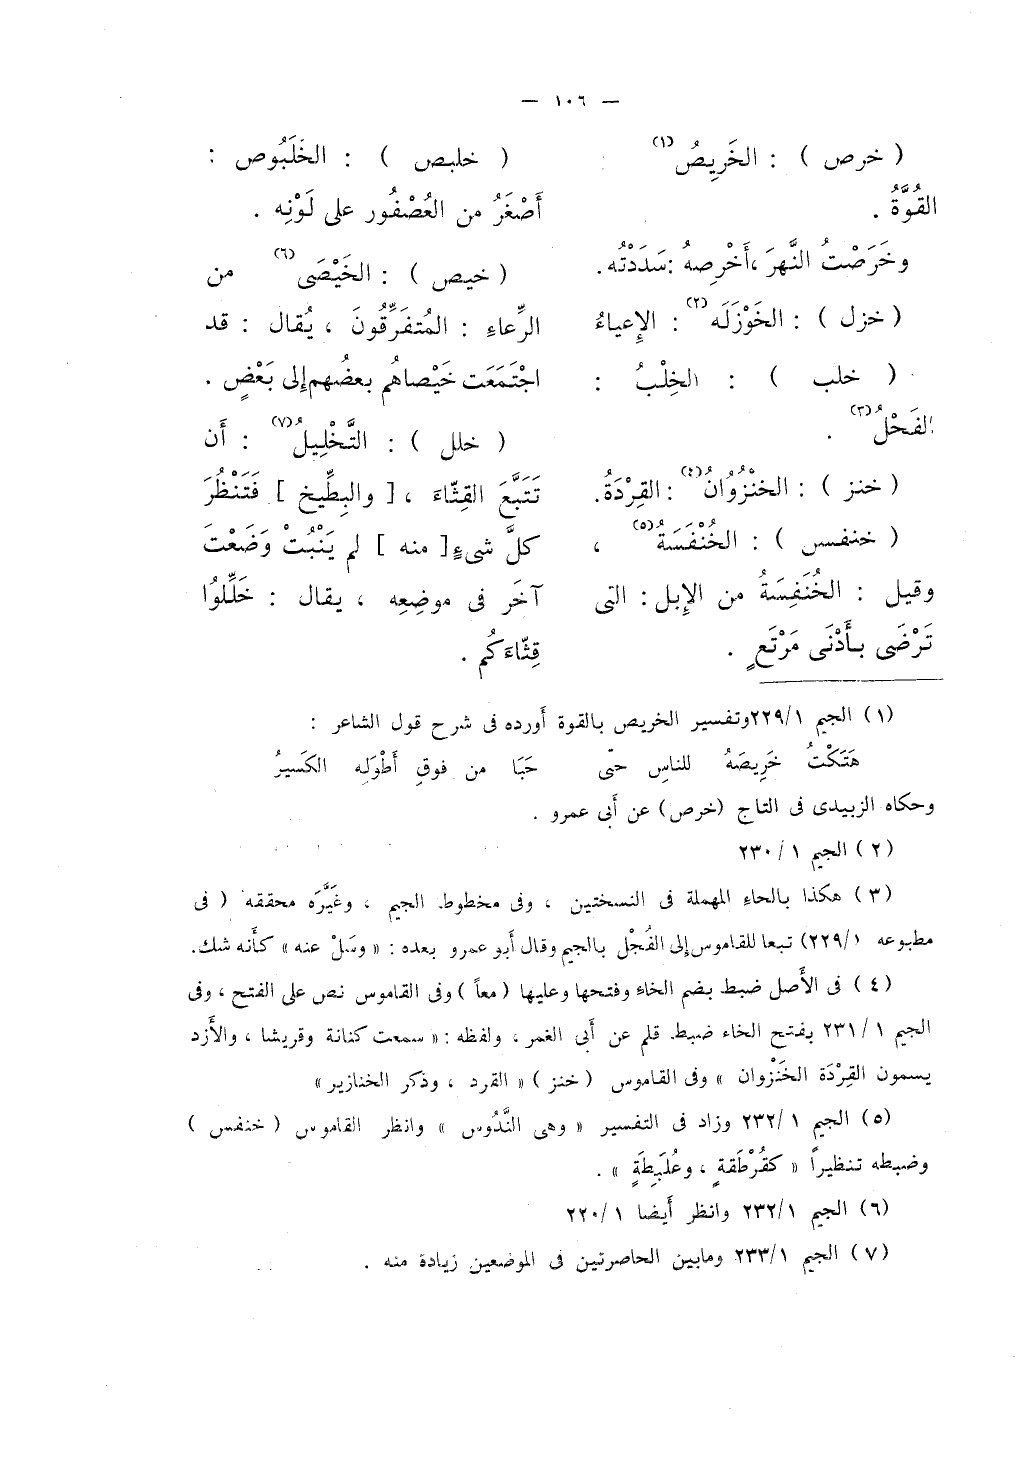 — ١٠٦ —
( خرص ) : الخَرِيصُ(١)
القُوَّةُ .
وخَرَصْتُ النَّهرَ ،أَخْرِصهُ :سَدَدْتُه.
( خزل ) : الخَوْزَلَه(٢) : الإعياءُ
( خلب ) : الخِلْبُ :
الفَحْلُ(٣) .
( خنز ) : الخنْزُوَانُ(٤) : القِرْدَةُ.
( خنفس ) : الخُنْفَسَةُ(٥) ،
وقيل : الخُنَفِسَةُ من الإِبل : التى
تَرْضَى بأَدْنَى مَرْتَعٍ .
( خلبص ) : الخَلَبُوص :
أَصْغَرُ من العُصْفُور على لَوْنِه .
( خيص ) : الخَيْصَى(٦) من
الرِّعاءِ : المُتفَرِّقُونَ ، يُقال : قد
اجْتَمَعَت خَيْصاهُم بعضُهم إلى بَعْضٍ .
( خلل ) : التَّخْلِيلُ(٧) : أَن
تَتَبَّعَ القِثّاءَ ، [ والبِطِّيخ ] فَتَنْظُرَ
كلَّ شىءٍ [ منه ] لم يَنْبُتْ وَضَعْتَ
آخَر فى موضِعِه ، يقال : خَلِّلُوا
قِثّاءَكُم .
(١) الجيم ٢٢٩/١ وتفسير الخريص بالقوة أورده فى شرح قول الشاعر :
هَتَكْتُ خَرِيصَهُ للناسِ حتّى حَبَا من فوقِ أَطْوَلِه الكَسيرُ
وحكاه الزبيدى فى التاج (خرص) عن أَبى عمرو .
(٢) الجيم ٢٣٠/١
(٣) هكذا بالحاءِ المهملة فى النسختين ، وفى مخطوط الجيم ، وغَيَّرَه محققه ( فى
مطبوعه ٢٢٩/١) تبعا للقاموس إلى الفُجْل بالجيم وقال أبو عمرو بعده : « وسَلْ عنه » كأَنه شك.
(٤) فى الأَصل ضبط بضم الخاءِ وفتحها وعليها (معاً) وفى القاموس نص على الفتح ، وفى
الجيم ٢٣١/١ بفتح الخاء ضبط قلم عن أَبى الغمر ، ولفظه : « سمعت كنانة وقريشا ، والأَزد
يسمون القِرْدَة الخَنْزُوان » وفى القاموس (خنز) « القرد ، وذكر الخنازير »
(٥) الجيم ٢٣٢/١ وزاد فى التفسير « وهى النَّدُوس » وانظر القاموس (خنفس)
وضبطه تنظيراً « كقُرْطَقةٍ ، وعُلَبِطَةٍ » .
(٦) الجيم ٢٣٢/١ وانظر أَيضا ٢٢٠/١
(٧) الجيم ٢٣٣/١ ومابين الحاصرتين فى الموضعين زيادة منه .